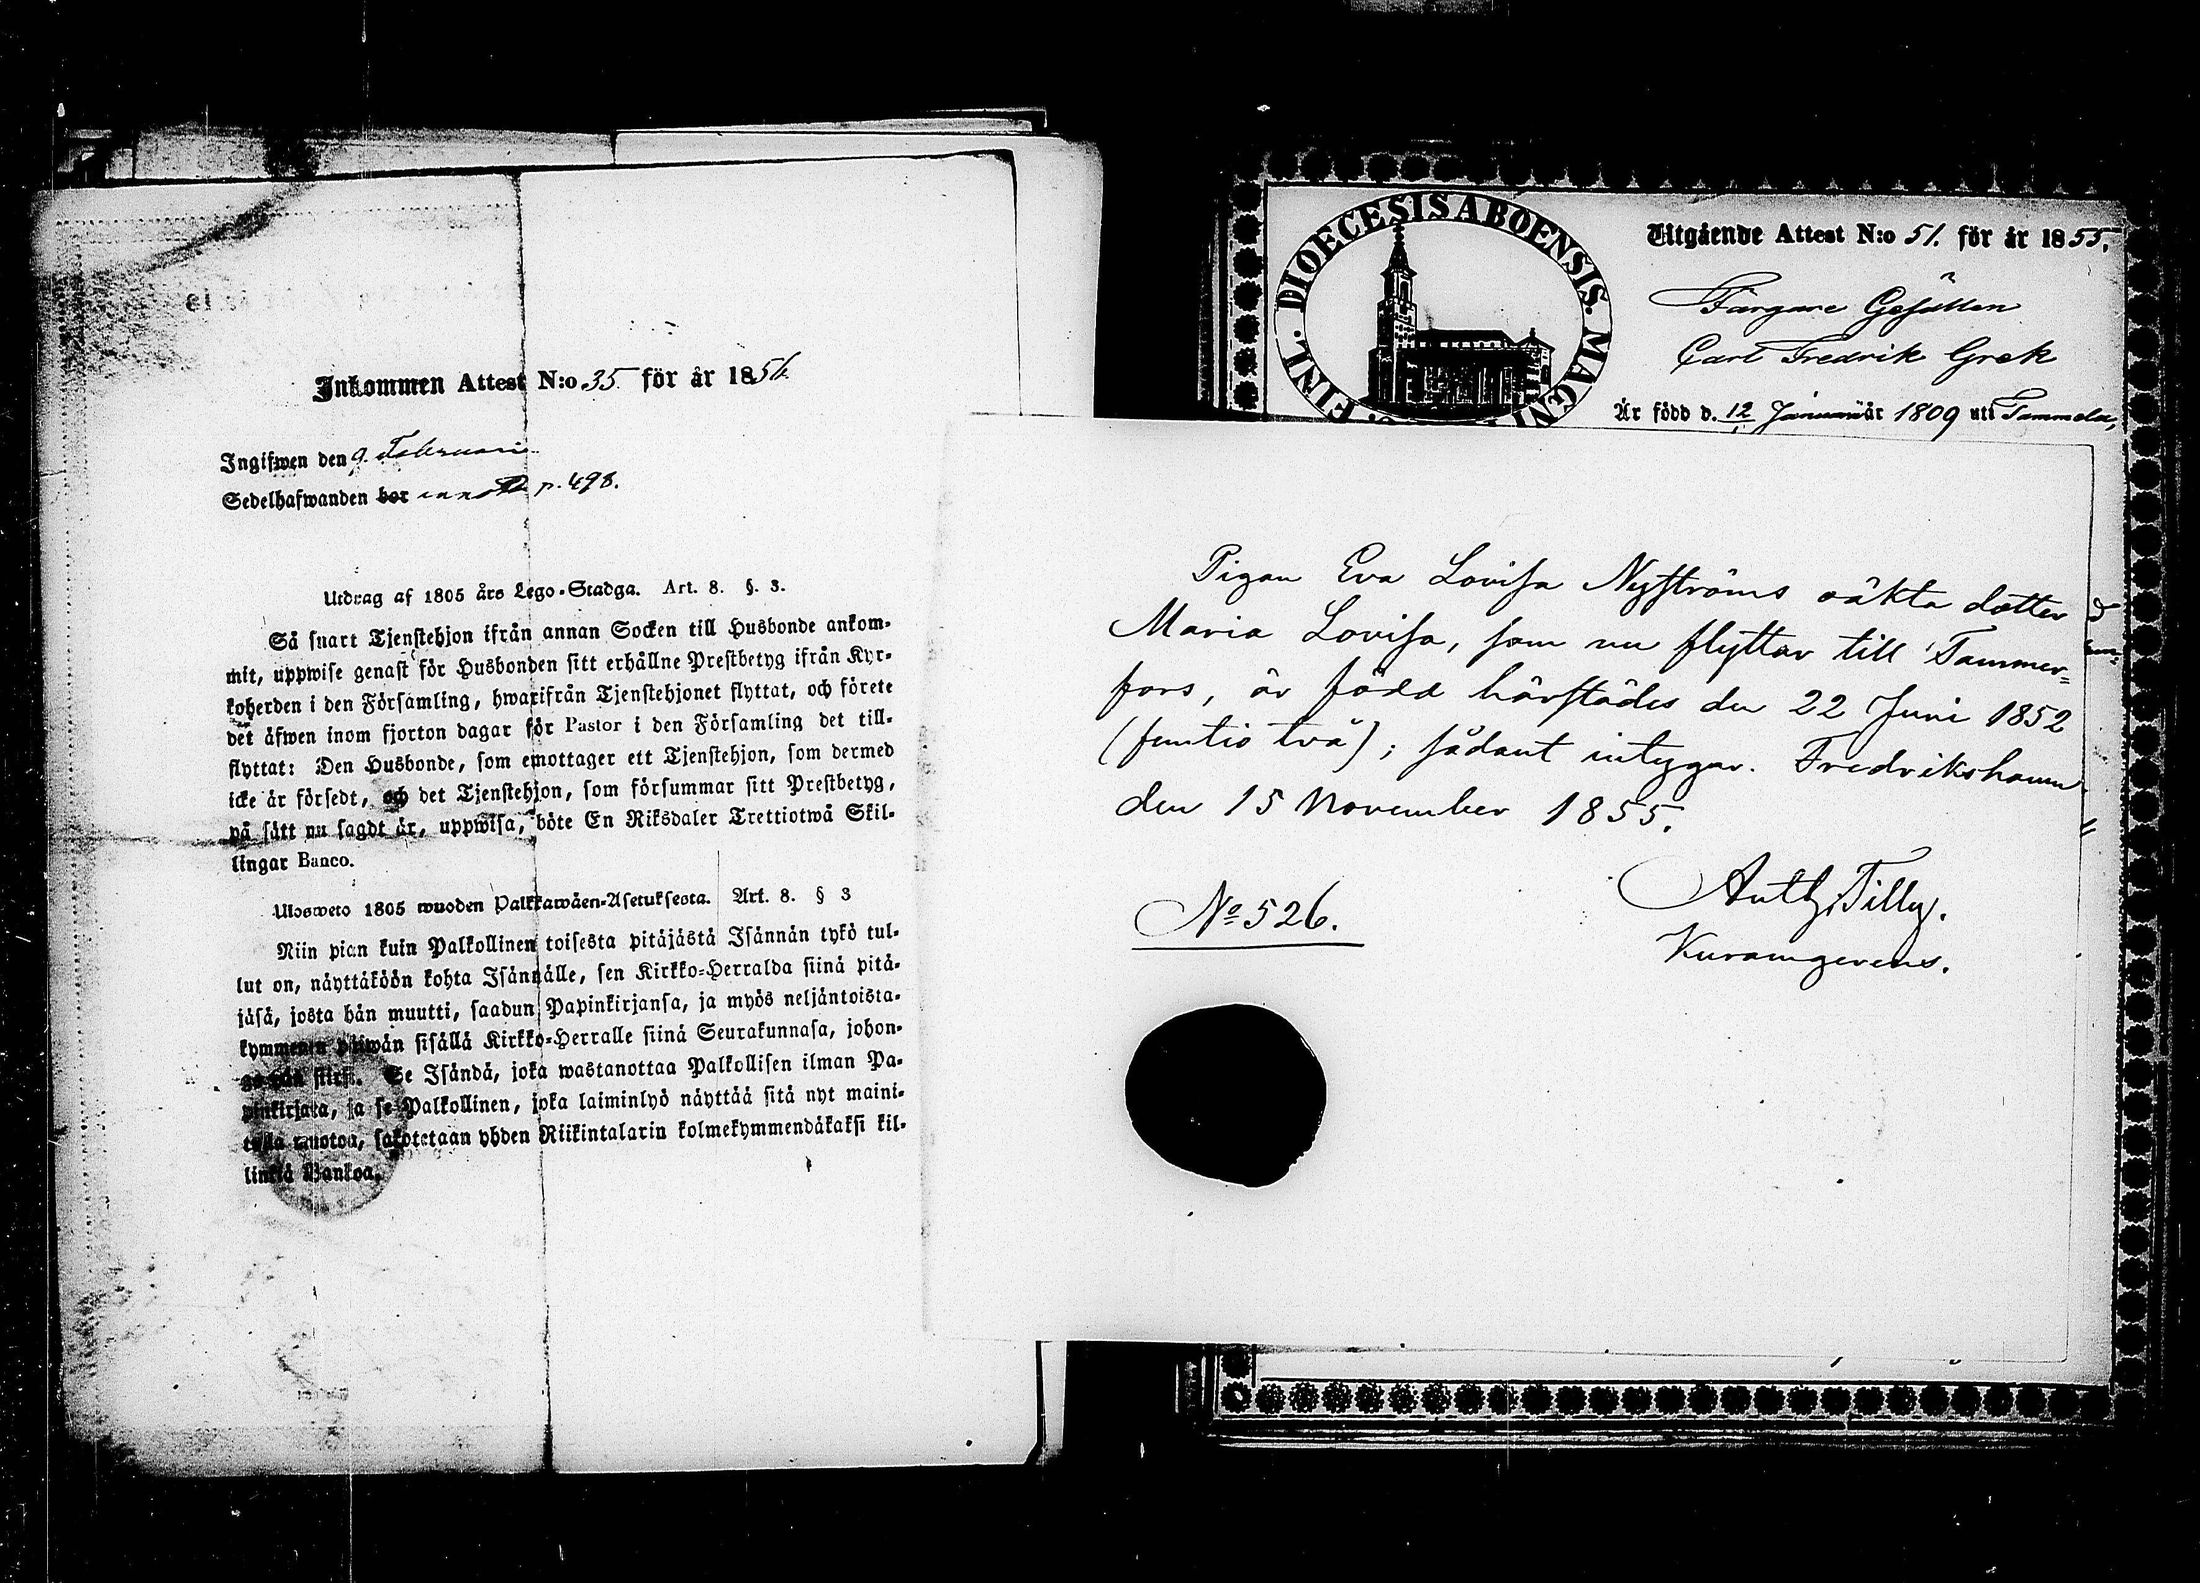 Inkommen Attest N:o 35 för år 1856
Ingifwen den 9. Februari
Sedelhafwanden bor p. 498.
Utdrag af 1805 års Lego-Stadga. Art. 8. §. 3.
Så snart Tjenstehjon ifrån annan Socken till Husbonde ankom-
mit, uppwise genast för Husbonden sitt erhållne Prestbetyg ifrån Kyr-
koherden i den Församling, hwarifrån Tjenstehjonet flyttat, och förete
det äfwen inom fjorton dagar för Pastor i den Församling det till-
flyttat: Den Husbonde, som emottager ett Tjenstehjon, som dermed
icke är försedt, och det Tjenstehjon, som försummar sitt Prestbetyg,
på sätt nu sagdt är, uppwisa, böte En Riksdaler Trettiotwå Skil-
lingar Banco.
Ulosweto 1805 wuoden Palkkawäen-Asetuksesta. Art. 8. § 3
Niin pian kuin Palkollinen toisesta pitäjästä Isännän tykö tul-
lut on, näyttäköön kohta Isännälle, sen Kirkko-Herralda siinä pitä-
jäsä, josta hän muutti, saadun Papinkirjansa, ja myös neljäntoista-
kymmenen päiwän sisällä Kirkko-Herralle siinä Seurakunnasa, johon-
ga hän siirsi. Se Isändä, joka wastanottaa Palkollisen ilman Pa-
pinkirjata, ja se Palkollinen, joka laiminlyö näyttää sitä nyt maini-
tulla muotoa, sakotetaan yhden Riikintalarin kolmekymmendäkaksi kil-
linkiä Bankoa.
FINL. DIOECESIS ABOENSIS. MAGNI
Utgående Attest N:o 51. för år 1855.
Färgare Gesällen
Carl Fredrik Grek
Är född d. 12 Januarii år 1809 uti Tammela,
Pigan Eva Lovisa Nyströms oäkta dotter
Maria Lovisa, som nu flyttar till Tammer=
fors, är född härstädes den 22 Juni 1852
(femtio två); sådant intygar. Fredrikshamn
den 15 November 1855.
Anth. Tilly.
Kuramgerens.
No 526.